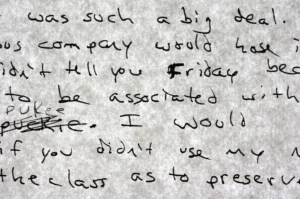 was such a big deal.
ous company would hose i
idn't tell you Friday bec
to be associated with
pukee
puckie. I would
if you didn't use my n
the class as to preserv